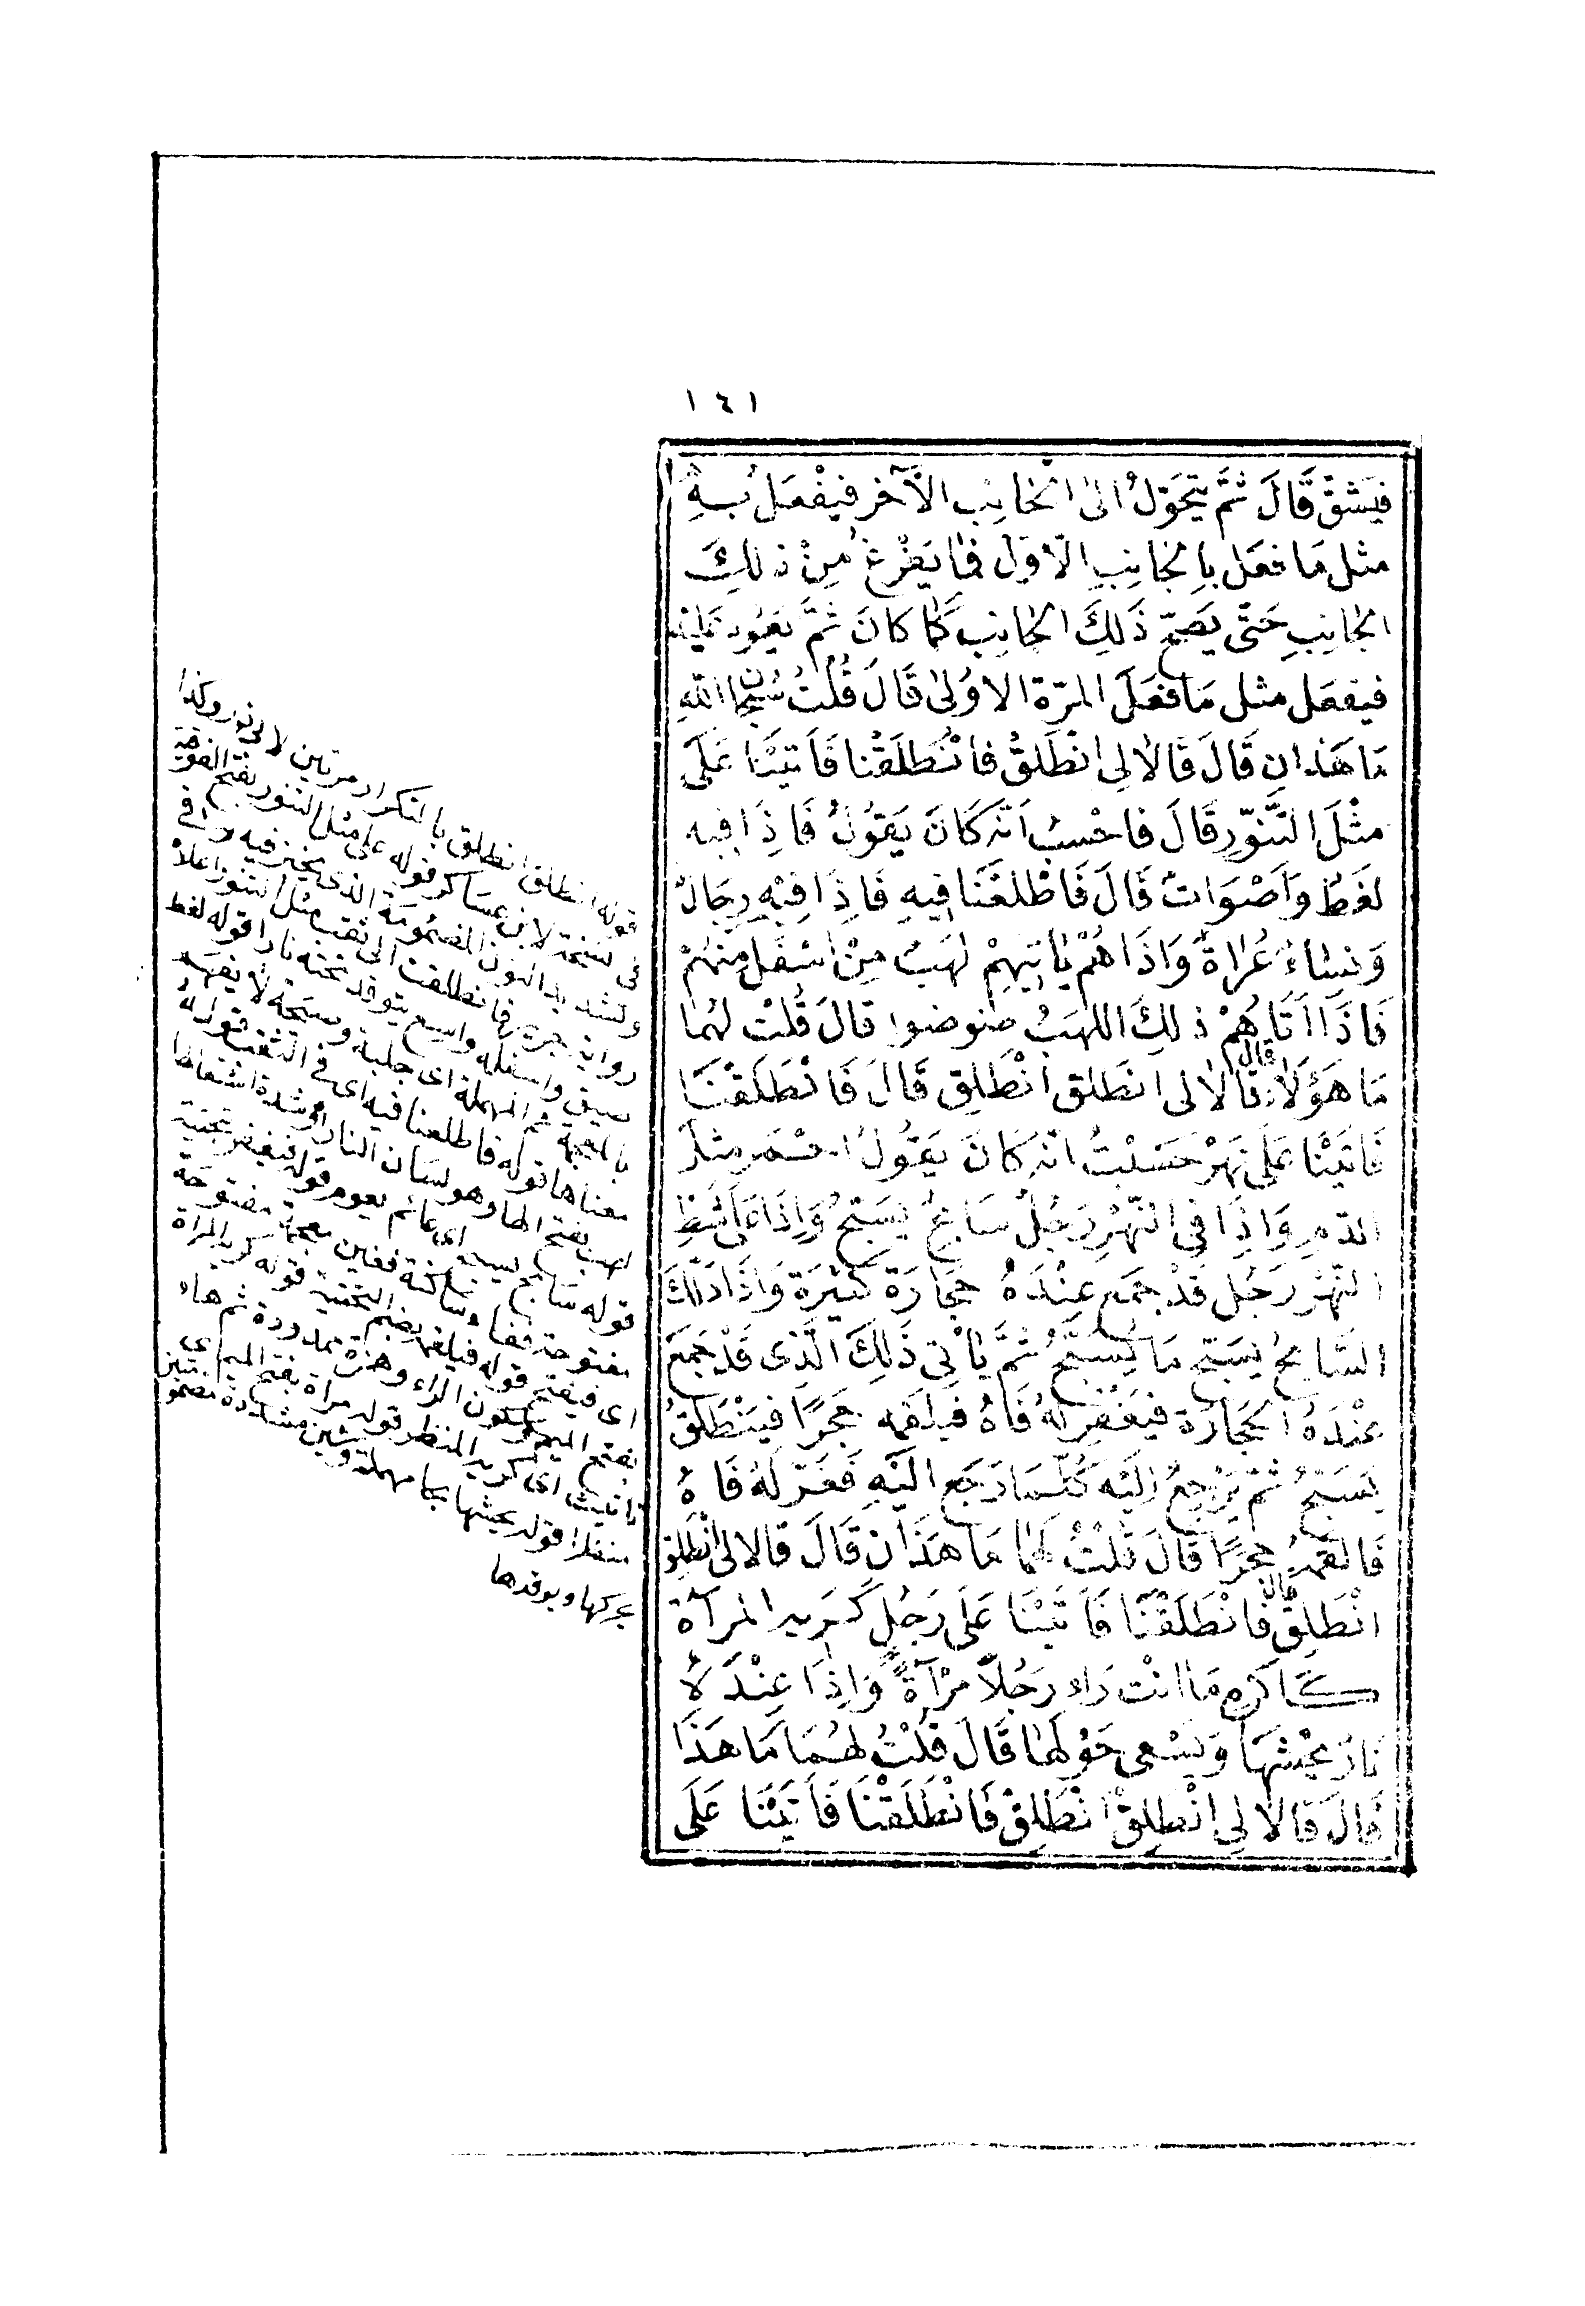 ١٤١
فَيَشُقُّ قَالَ ثُمَّ يَتَحَوَّلُ الى الْجَانِبِ الآخَرِ فَيَفْعَلُ بِهِ
مثل مَا فعَل بِالجَانِبِ الاَوَّلِ فمَا يَفْرغُ مِنْ ذلِكَ
الجَانِبِ حَتَّى يَصِحَّ ذَلِكَ الجَانِبُ كَمَا كَانَ ثُمَّ يَعُودُ عَلَيْهِ
فيفعَل مثل مَا فَعَلَ المرّةَ الاُولى قَالَ قُلْتُ سُبْحَانَ اللهِ
مَا هَذانِ قَالَ قَالَا لِى انْطَلِقْ فانْطَلَقْنا فَأتَيْنَا عَلَى
مِثْلِ التَّنّوُرِ قَالَ فاحْسِبُ اَنّه كَانَ يَقُولُ فَاِذَا فِيهِ
لغَطٌ وَاَصْوَاتٌ قَالَ فَاطَّلَعْنَا فِيهِ فَاِذَا فِيْهِ رِجَالٌ
وَنِسَاءٌ عُرَاةٌ وَاذَا هُمْ يَاتِيهِمْ لهَبٌ مِنْ اَسْفَلَ مِنْهُمْ
فَاذَا اَتَاهُمْ ذلِكَ اللّهَبُ ضَوضوا قالَ قُلتُ لهُمَا
مَا هَؤلَاءِ قال قَالَا لى انطَلِق انْطَلِق قَالَ فَانْطَلَقْنَا
فَاتَيْنَا عَلَى نَهَرٍ حَسَبْتُ انّه كَانَ يَقُولُ احْمَر مِثلَ
الدّمِ وَاذَا فى النّهْرِ رَجُلٌ سَابحٌ يَسْبَحُ وَاِذَا عَلَى شَطِّ
النَّهْرِ رَجُل قَدْ جمَع عِنْدَهُ حِجَارَةً كَثِيْرَةً وَاذَا ذلِكَ
السَّابحُ يَسبَح مَا يَسْبَحُ ثُمَّ يَأْتى ذَلِكَ الَّذِى قَدْ جَمَعَ
عِنْدَهُ الحِجَارَةَ فيَفْغَر لَهُ فَاهُ فيلقمه حَجَرًا فيَنْطَلِقُ
يَسْبَحُ ثُمَّ يَرْجِعُ اِلَيْهِ كُلَّمَا رَجَعَ الَيْهِ فَغَرَ لَهُ فَاهُ
فَالقمهُ حجرًا قَالَ قُلْتُ لهُمَا مَا هَذَانِ قَالَ قالا لى انْطَلِق
انْطَلِقْ قال فَانْطَلَقْنَا فَاَتَيْنَا عَلَى رَجُلٍ كَرِيهِ المرآةِ
كَاكرَهِ مَا انْت رَاءٍ رَجُلًا مَرْآةً وَاِذَا عِنْدَهُ
نَارٌ يَحُشّهَا وَيَسْعى حَوْلَهَا قَالَ قُلْتُ لهُمَا مَا هَذَا
قَالَ قَالَا لِى انْطَلِقْ انْطَلِقْ فَانْطَلَقْنَا فَأَتَيْنَا عَلَى
قوله انطلق انطلق بالتكرار مرتين لابى ذر وكذا
فى نسخة لابن عساكر قوله على مثل التنور بفتح الفوقية
وتشديد النون المضمومة الذى يخبز فيه وفى
رواية جرير فانطلقنا الى ثقب مثل التنور اعلاه
ضيق واسفله واسع يتوقد تحته نارا قوله لغط
بالمعجمة ثم المهملة اى جلبة وصيحة لا يفهم
معناها قوله فاطلعنا فيه اى فى الثقب قوله
لهب بفتح الها وهو لسان النار او شدة اشتعالها
قوله سابح يسبح اى عائم يعوم قوله فيفغر بتحتية
مفتوحة ففاء ساكنة فغين معجمة مفتوحة
اى فيفتح قوله فيلقمه بضم التحتية قوله كريه المرآة
بفتح الميم وسكون الراء وهمزة ممدودة ثم هاء
تانيث اى كريه المنظر قوله مرآة بفتح الميم اى
منظرا قوله يحشها بحا مهملة وشين مشددة مضمومتين
يحركها ويوقدها